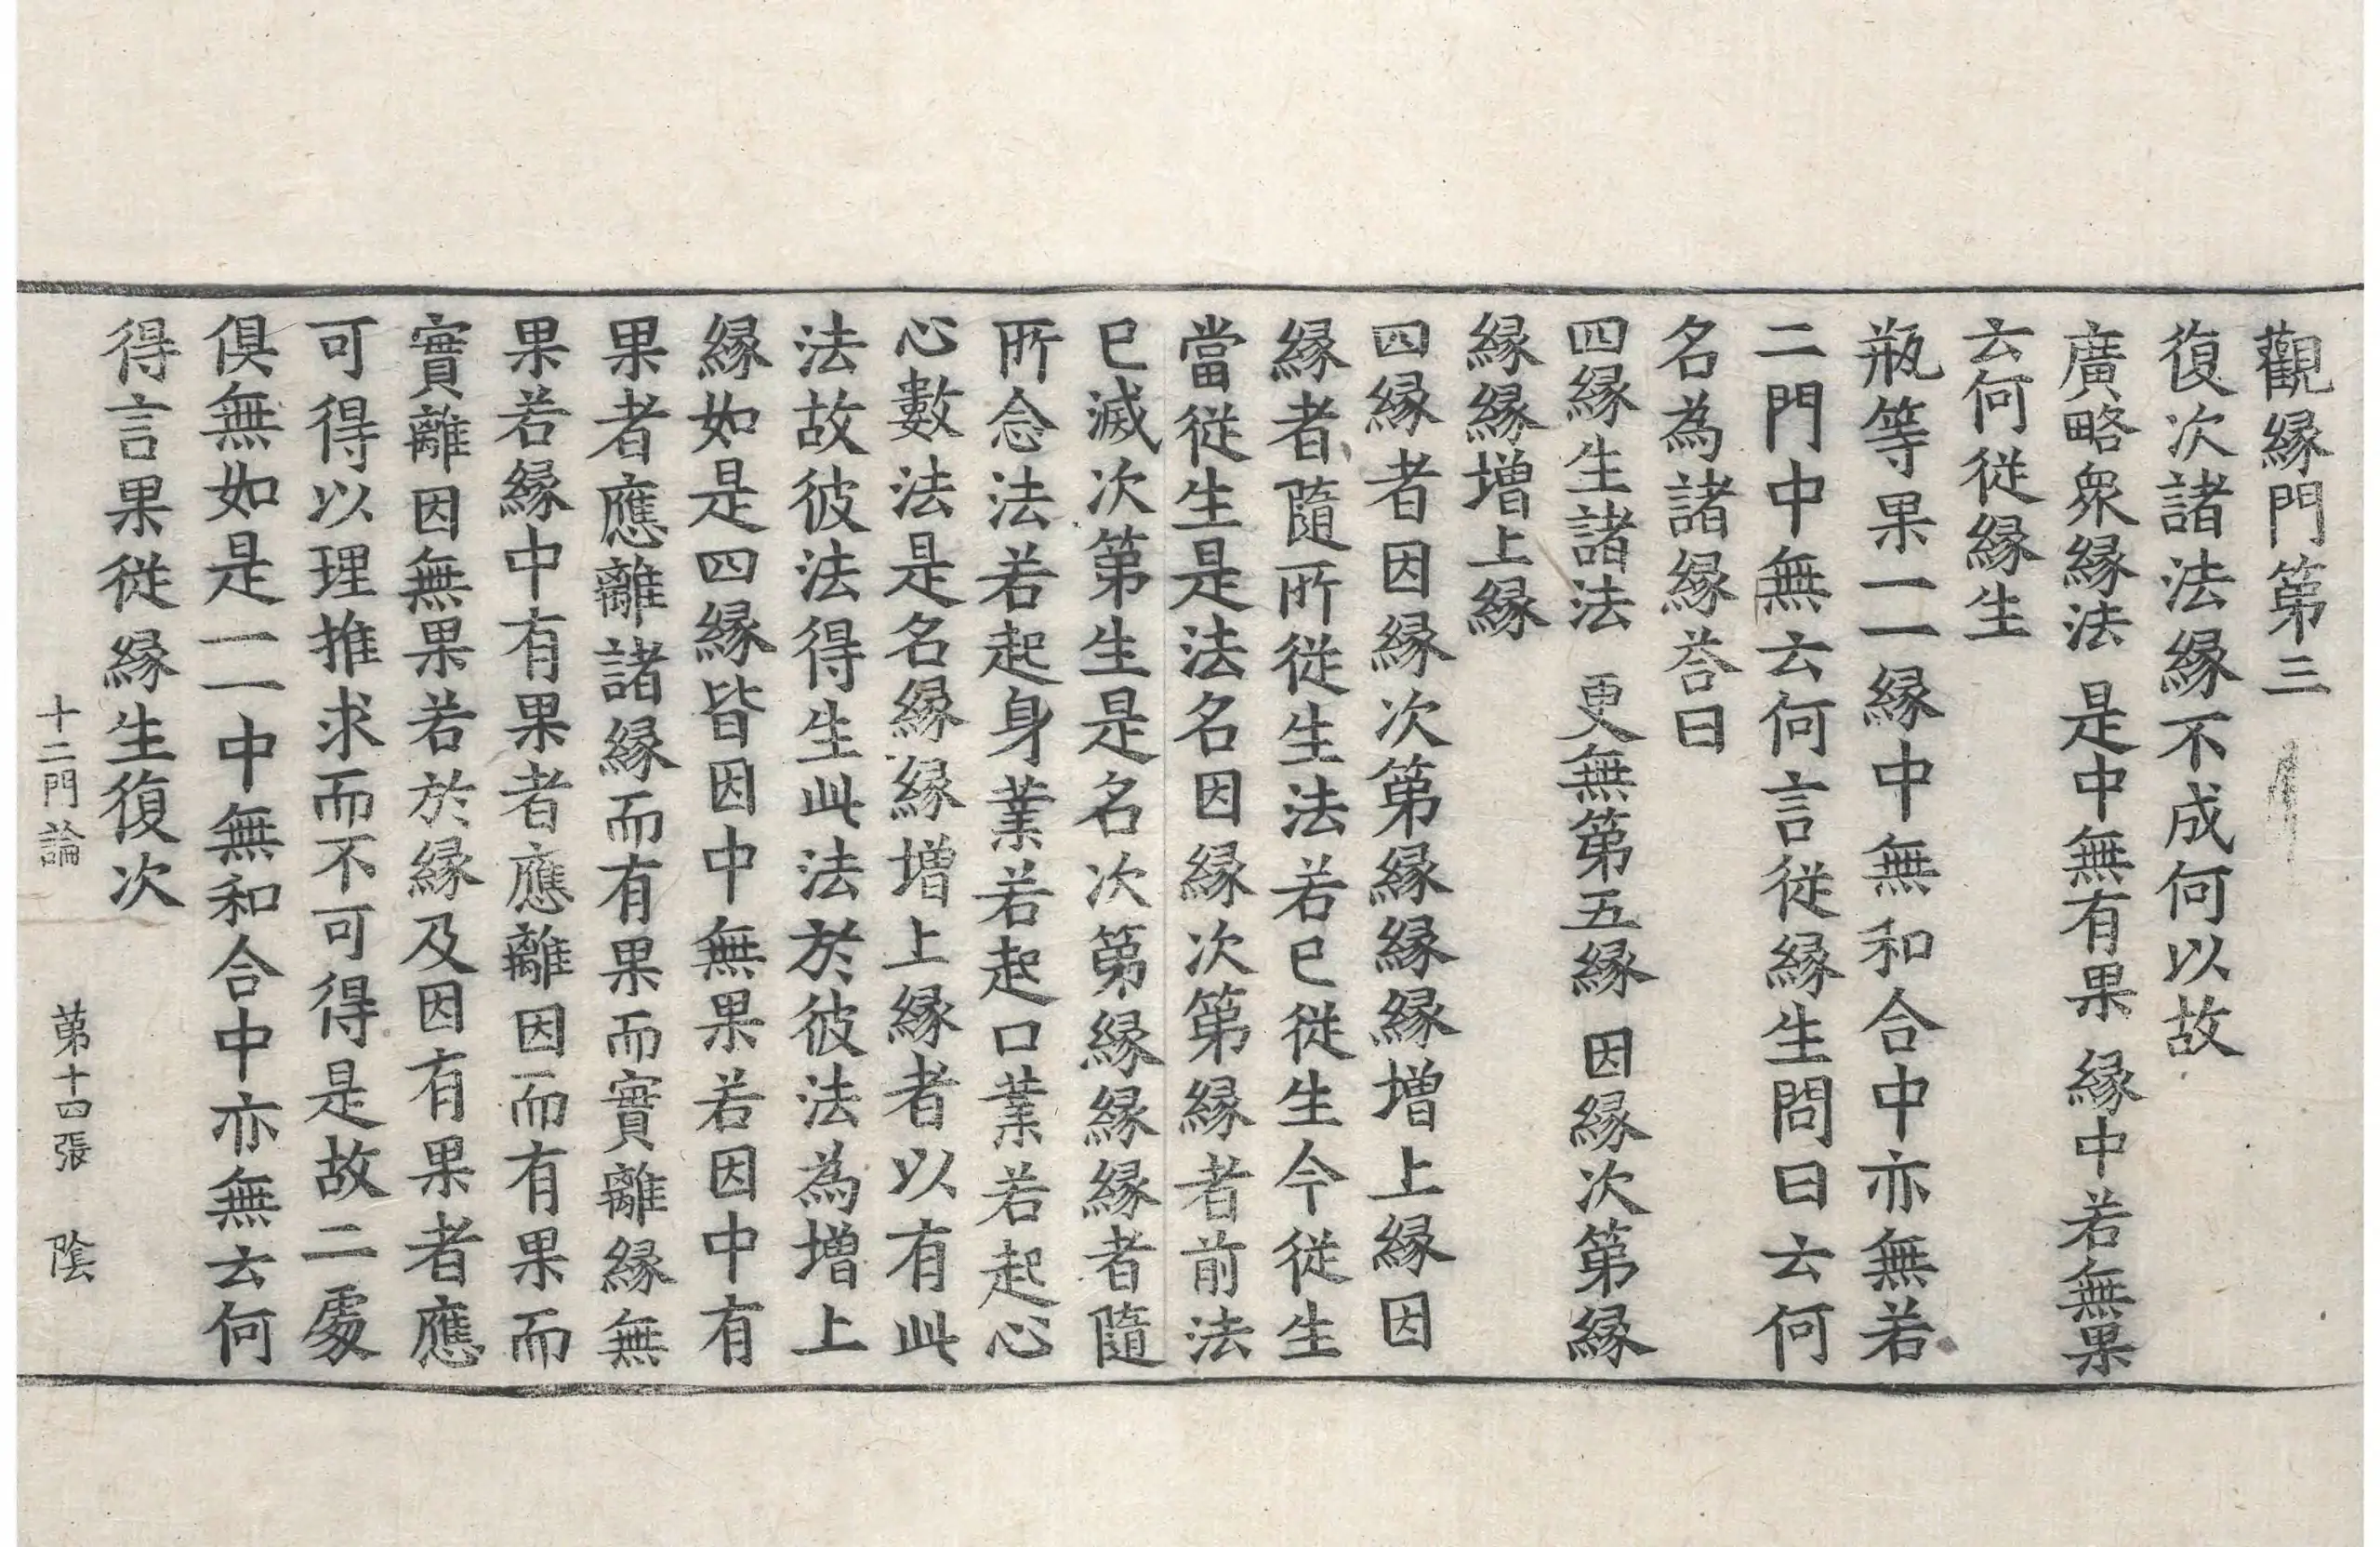 觀縁門第三
復次諸法縁不成何以故
廣略衆縁法 是中無有果 縁中若無果
云何從縁生
瓶等果一一縁中無和合中亦無若
二門中無云何言從縁生問曰云何
名為諸縁荅曰
四縁生諸法 更無第五縁 因縁次第縁
縁縁增上縁
四縁者因縁次第縁縁縁增上縁因
縁者隨所從生法若已從生今從生
當從生是法名因縁次第縁者前法
已滅次第生是名次第縁縁縁者隨
所念法若起身業若起口業若起心
心數法是名縁縁增上縁者以有此
法故彼法得生此法於彼法為增上
縁如是四縁皆因中無果若因中有
果者應離諸縁而有果而實離縁無
果若縁中有果者應離因而有果而
實離因無果若於縁及因有果者應
可得以理推求而不可得是故二處
俱無如是一一中無和合中亦無云何
得言果從縁生復次
十二門論 第十四張 陰